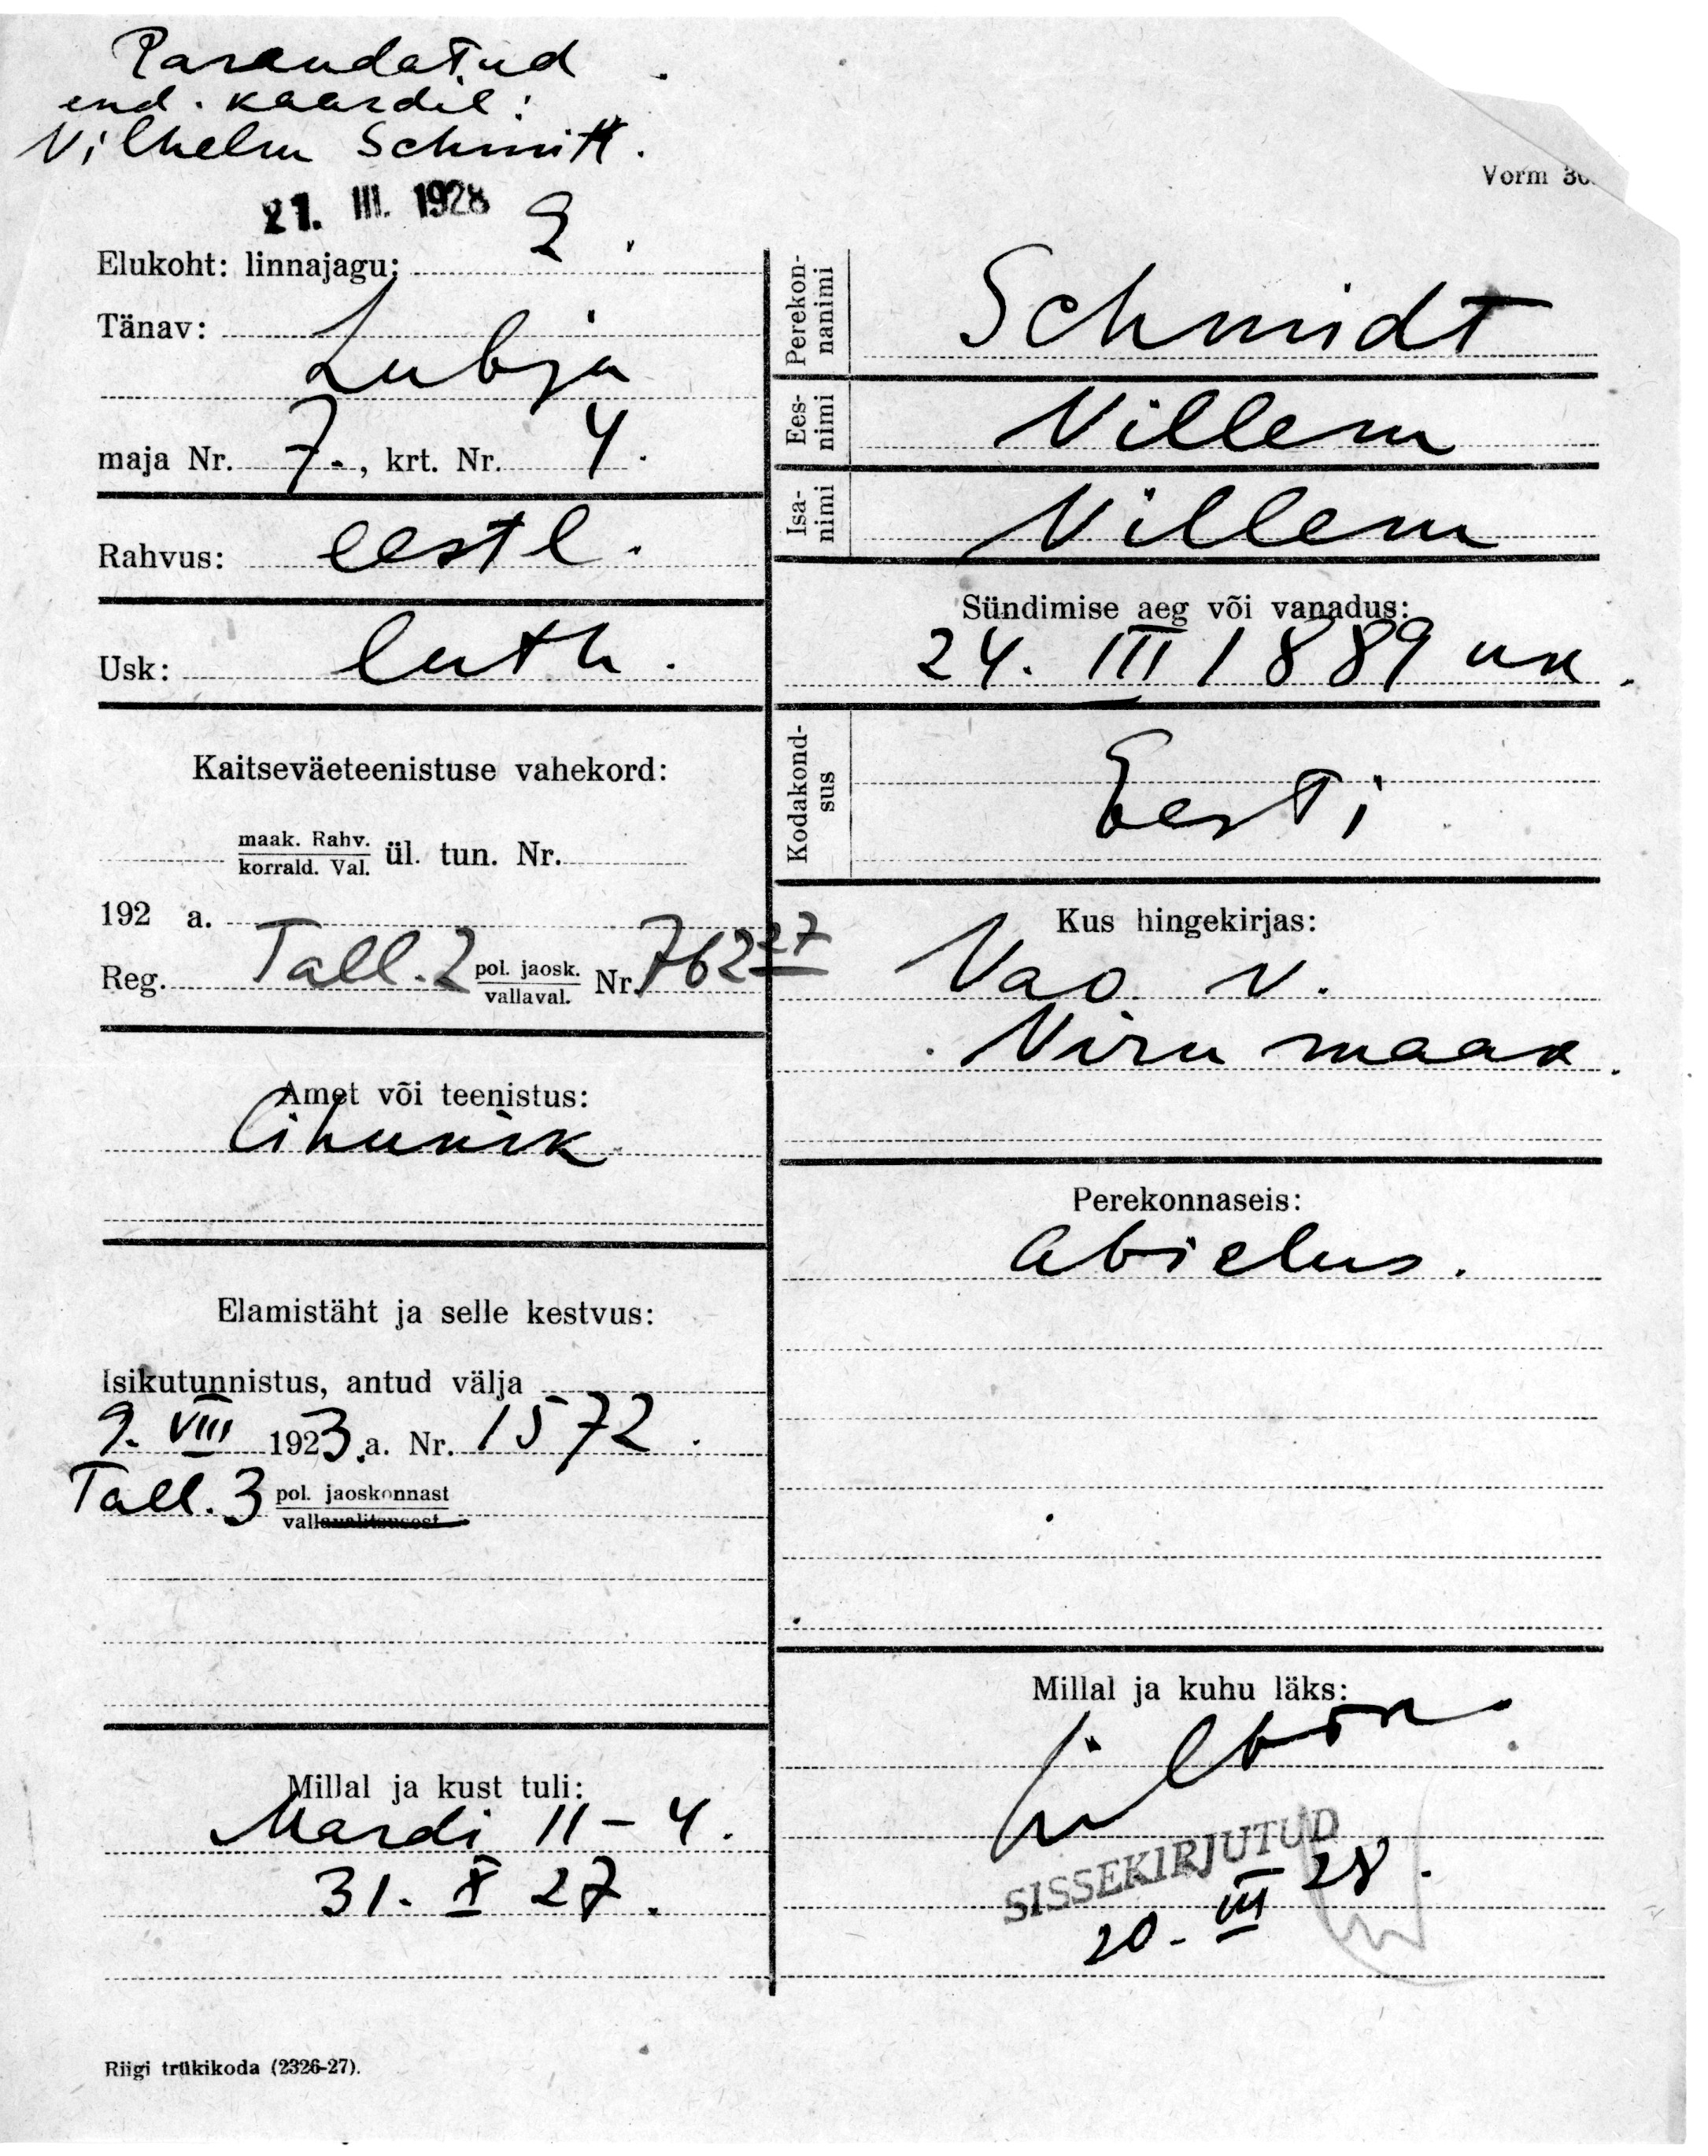 Parandatud
end. kaardil:
Vilhelm Schmitt.
21. III. 1928
Elukoht: linnajagu: 2.
Tänav:
Lubja
maja Nr. 7., krt. Nr. 4.
Rahvus: eestl.
Usk: luth.
Kaitseväeteenistuse vahekord:
maak. Rahv.
korrald. Val. ül. tun. Nr.
192 a.
Reg. Tall. 2 pol. jaosk. Nr. 762 27
vallaval.
Amet või teenistus:
lihunik
Elamistäht ja selle kestvus:
Isikutunnistus, antud välja
9. VIII 1923. a. Nr. 1572.
Tall. 3 pol. jaoskonnast
vallavalitsusest
Millal ja kust tuli:
Mardi 11-4.
31. X 27.
Riigi trükikoda (2326-27).
Vorm
Perekon-
nanimi
Schmidt
Ees-
nimi
Villem
Isa-
nimi
Villem
Sündimise aeg või vanadus:
24. III 1889 uk.
Kodakond-
sus
Eesti
Kus hingekirjas:
Vao v.
Virumaa
Perekonnaseis:
Abielus.
Millal ja kuhu läks:
SISSEKIRJUTUD
20. III 28.